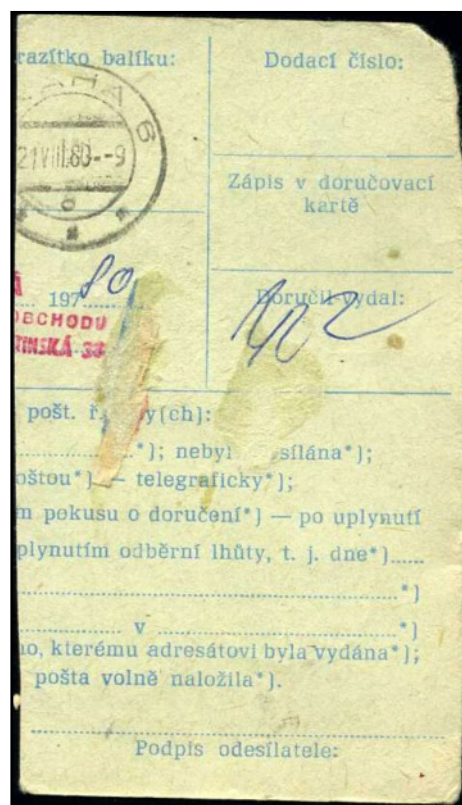 razítko balíku:
Dodací číslo:
6
21VIII.80--9
Zápis v doručovací
kartě
197 80
Doručil-vydal:
OBCHODU
TINSKÁ 38
402
pošt. ř. y(ch):
*); nebyl sílána*);
oštou*) — telegraficky*);
m pokusu o doručení*) — po uplynutí
plynutím odběrní lhůty, t. j. dne*)
*)
v *)
ho, kterému adresátovi byla vydána*);
pošta volně naložila*).
Podpis odesílatele: